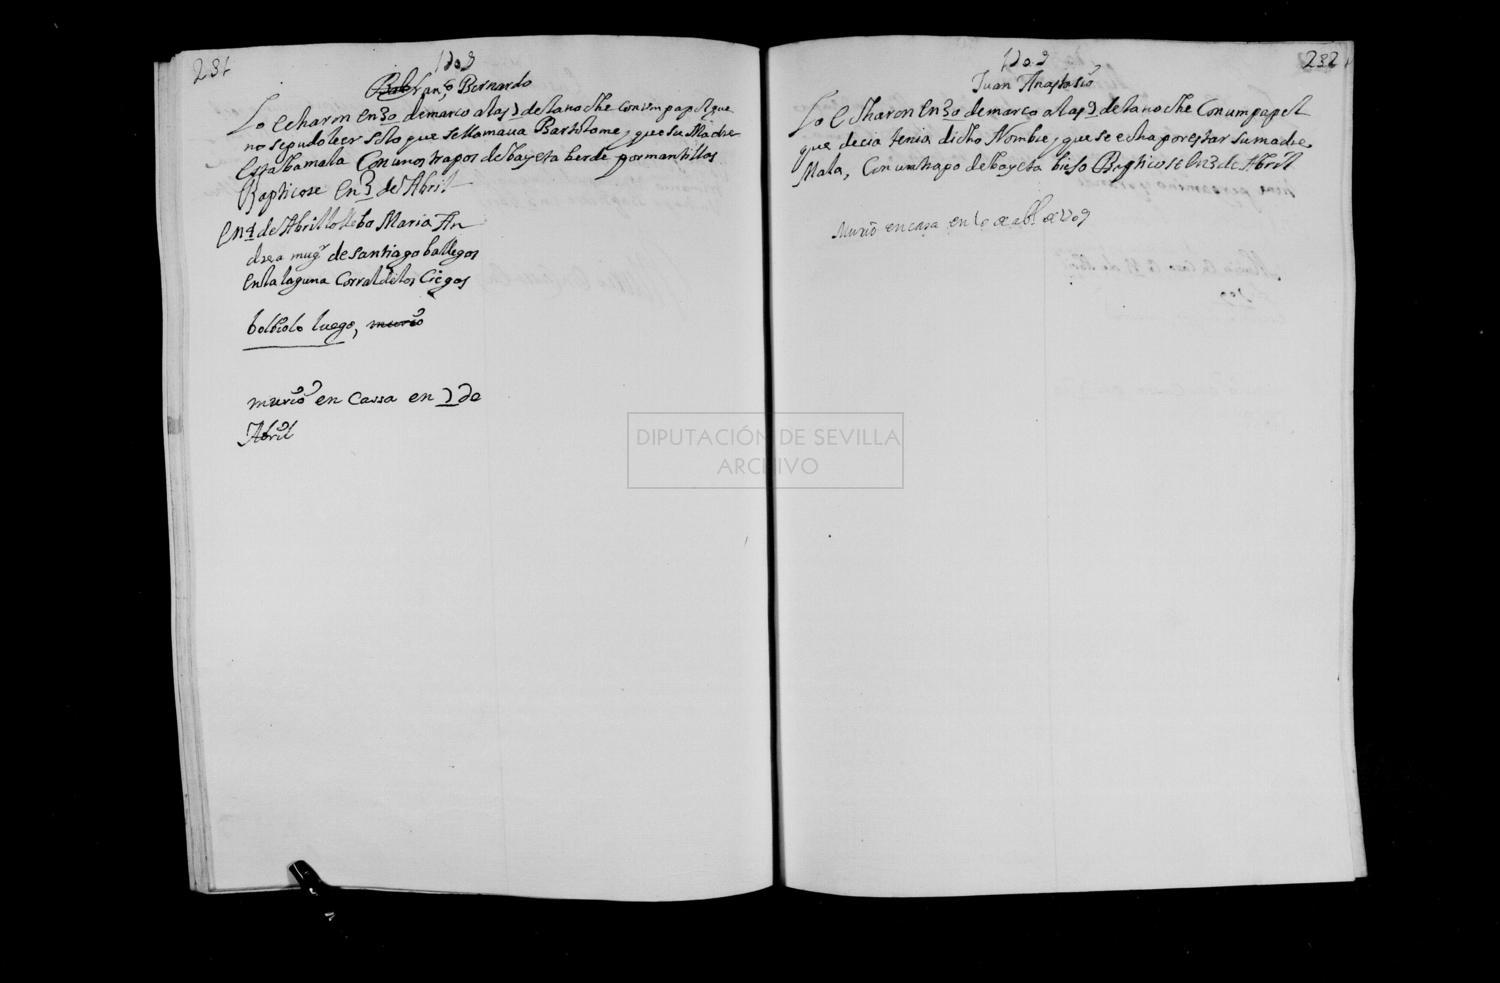 231
1709
Franco Bernardo
Lo echaron en 30 de marco a las 9 de la noche con um papel que
no se pudo leer solo que se llamaua Bartholome, y que su Madre
estaba mala Con unos trapos de bayeta berde por mantillos
Bapticose en 3 de Abril
en 4 de Abril lo llebo Maria An
drea mugr de santiago ballegos
en la laguna Corral de los Ciegos
bolbiolo luego, murio
murio en Cassa en 7 de
Abril
232
1709
Juan Anastasio
Lo echaron en 30 de marco a las 9 de la noche Con um papel
que decia tenia dicho Nombre, y que se echa por estar su madre
Mala, Con um trapo de bayeta biejo Bapticose en 3 de Abril
Murio en casa en de abl de 1709
DIPUTACIÓN DE SEVILLA
ARCHIVO